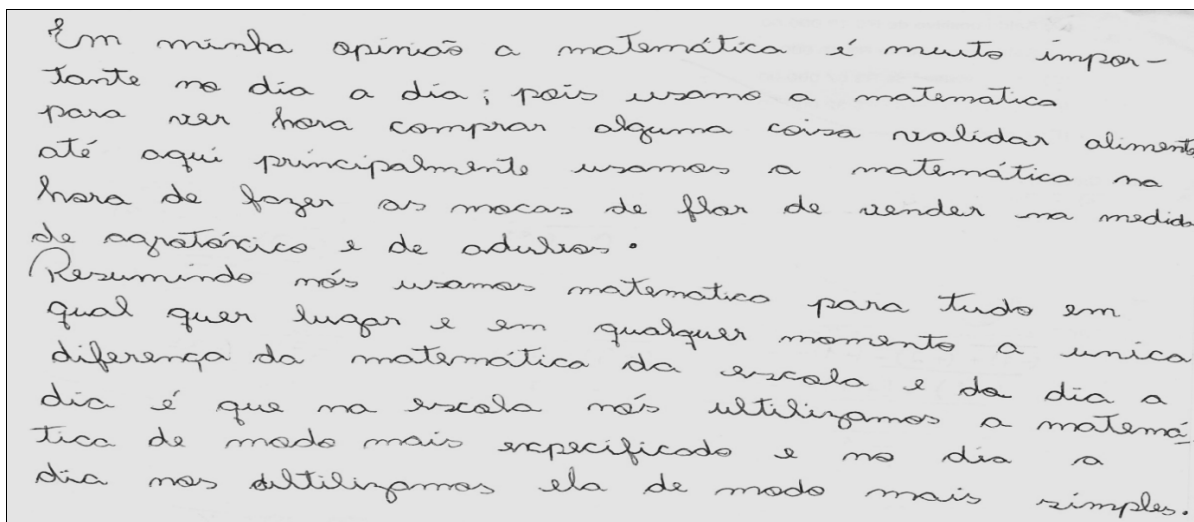 Em minha opinião a matemática é muito impor-
tante no dia a dia; pois usamo a matematica
para ver hora comprar alguma coisa validar alimento
até aqui principalmente usamos a matemática na
hora de fazer as mocas de flor de vender na medida
de agrotóxico e de adubos.
Resumindo nós usamos matematica para tudo em
qual quer lugar e em qualquer momento a unica
diferença da matemática da escola e do dia a
dia é que na escola nós ultilizamos a matemá-
tica de modo mais especificado e no dia a
dia nos ultilizamos ela de modo mais simples.